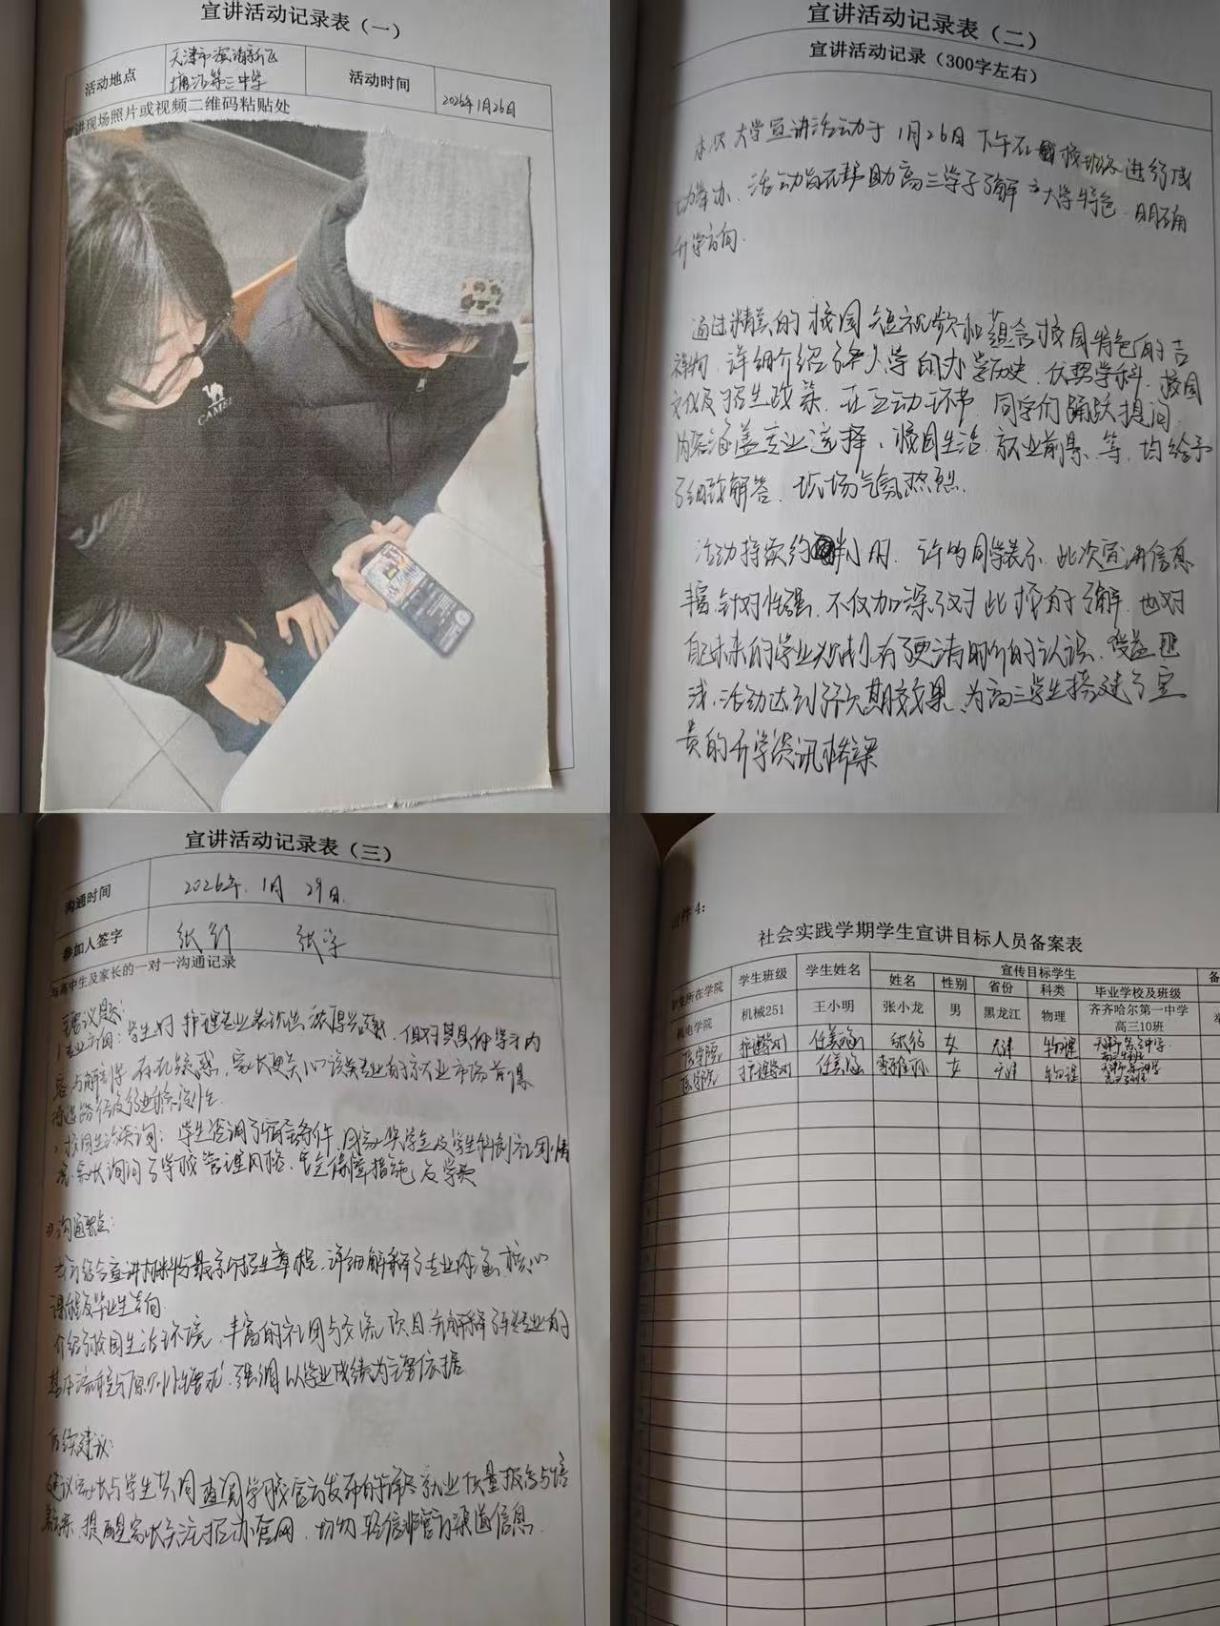 宣讲活动记录表（一）
活动地点
天津市滨海新区
塘沽第二中学
活动时间
2026年1月26日
讲现场照片或视频二维码粘贴处
CAMEL
宣讲活动记录表（二）
宣讲活动记录（300字左右）
本次大学宣讲活动于1月26日下午在 校 进行成
功举办、活动旨在帮助高三学子了解 大学特色，明确
升学方向.
通过精美的校园短视频和蕴含校园特色的吉
祥物，详细介绍了大学的办学历史、优势学科、校园
文化及招生政策，在互动环节，同学们踊跃提问，
内容涵盖专业选择、校园生活、就业前景、等，均给予
了细致解答，现场气氛热烈.
活动持续约半小时，许多同学表示，此次宣讲信息
丰富，针对性强，不仅加深了对此校的了解，也对
自己未来的学业规划有了更清晰的认识，受益匪
浅，活动达到了预期效果，为高三学生搭建了宝
贵的升学资讯桥梁
宣讲活动记录表（三）
沟通时间
2026年 1月 29日.
参加人签字
与高中生及家长的一对一沟通记录
主要议题：
专业咨询：学生对护理专业表现出浓厚兴趣，但对其具体学习内
容与 存在疑惑，家长更关心该类专业的就业市场前景
校园生活咨询：学生咨询了宿舍条件、 奖学金及学生社团情
况，家长询问了学校管理风格、安全保障措施及学费
沟通要点：
结合宣讲材料与最新招生章程，详细解释了专业内涵、核心
课程及毕业生去向.
介绍了校园生活环境、丰富的社团与交流项目，并解释了转专业的
基本流程与原则性要求，强调以学业成绩为主要依据
后续建议：
建议家长与学生共同查阅学校官方发布的 就业质量报告与培
，提醒家长关注招办官网，切勿轻信非官方渠道信息.
附件4：
社会实践学期学生宣讲目标人员备案表
学生所在学院
学生班级
学生姓名
宣传目标学生
姓名
性别
省份
科类
毕业学校及班级
备
机电学院
机械251
王小明
张小龙
男
黑龙江
物理
齐齐哈尔第一中学
高三10班
医学院
女
天津
物理
医学院
女
天津
物理